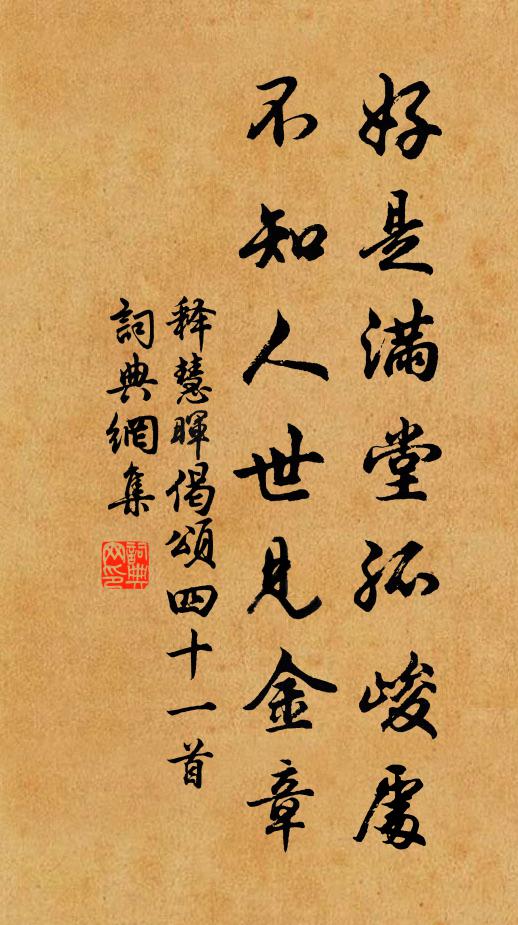 好是滿堂孤峻處
不知人世見金章
释慧暉偈頌四十一首
詞典網集
詞典网印